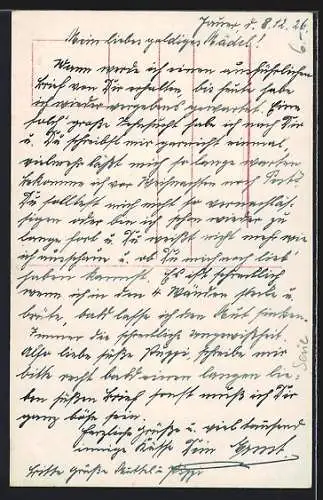 Jauer d. 8.12.26.
Mein liebes goldiges Mädel!
Wann werde ich einen ausführlichen
Brief von Dir erhalten, bis heute habe
ich wieder vergebens gewartet. Eine
solch' große Sehnsucht habe ich nach Dir
u. Du schreibst mir garnicht einmal,
vielmehr läßt mich so lange warten
bekomme ich vor Weihnachten noch Post?
Du solltest mich nicht so vernachläs-
sigen oder bin ich schon wieder zu
lange fort u. Du weißt nicht mehr wie
ich ausschaue u. ob Du mich noch lieb
haben kannst. Es ist schrecklich
wenn ich in den 4 Wänden stecke u.
brüte, bald lasse ich den Mut sinken.
Immer die schreckliche Ungewißheit.
Also liebe süße Puppi, schreibe mir
bitte recht bald einen langen lie-
ben süßen Brief sonst muß ich Dir
ganz böse sein.
Herzliche Grüße u. viel tausend
innige Küsse Dein Ernst.
Bitte Grüße Muttel u.
Serie
6-